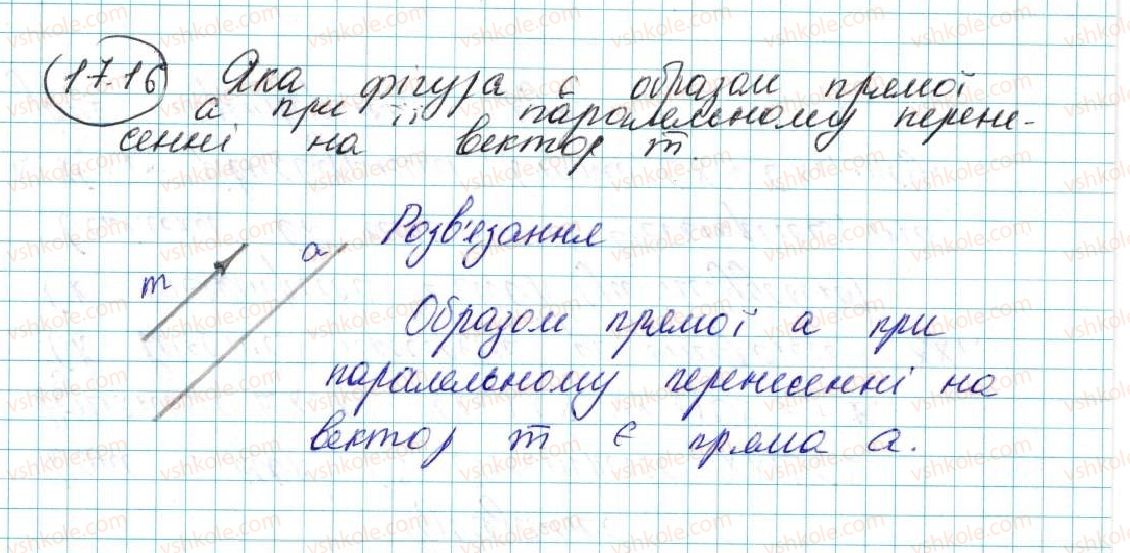 17.16 Яка фігура є образом прямої
a при її паралельному перене-
сенні на вектор m̅.
Розв'язання
m a
Образом прямої a при
паралельному перенесенні на
вектор m̅ є пряма a.